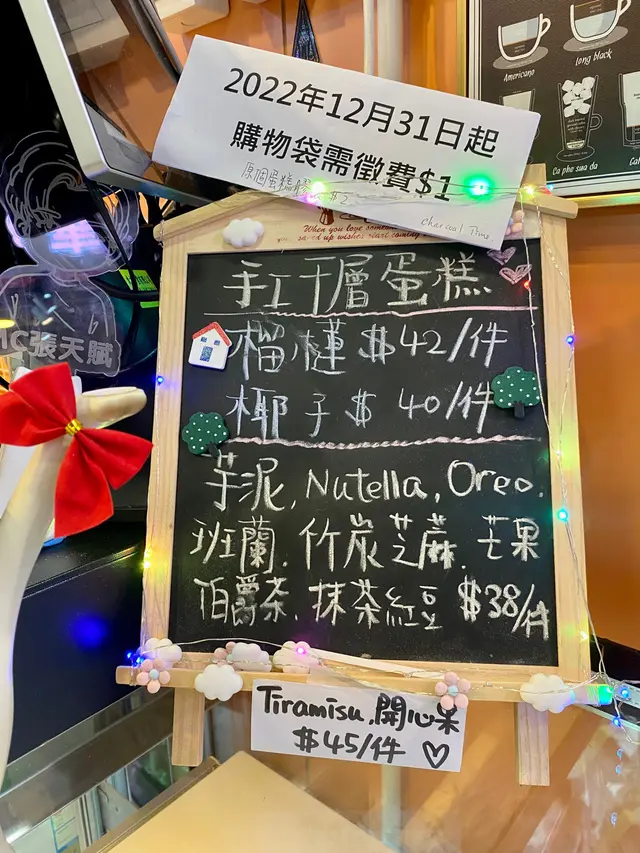 Americano
long black
Ca phe sua da
2022年12月31日起
購物袋需徵費$1
原個蛋糕
Charcoal Time
When you love
手工千層蛋糕
榴槤 $42/件
椰子 $ 40/件
芋泥, Nutella, Oreo.
班蘭. 竹炭芝麻. 芒果
伯爵茶. 抹茶紅豆 $38/件
Tiramisu, 開心果
$45/件 ♡
張天賦